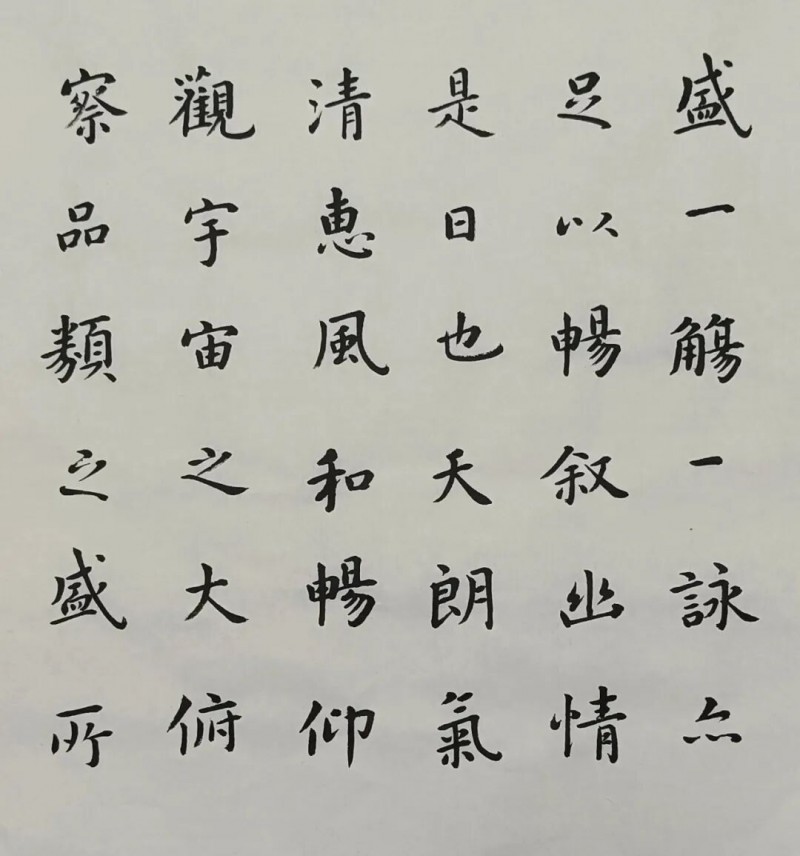 盛一觴一詠亦
足以暢叙幽情
是日也天朗氣
清惠風和暢仰
觀宇宙之大俯
察品類之盛所